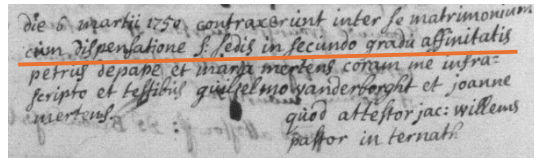 die 6 martij 1750 contraxerunt inter se matrimonium
cum dispensatione s: sedis in secundo gradu affinitatis
petrus depape et maria mertens coram me infra=
scripto et testibus guilielmo vanderborght et joanne
mertens
quod attestor jac: willems
pastor in ternath